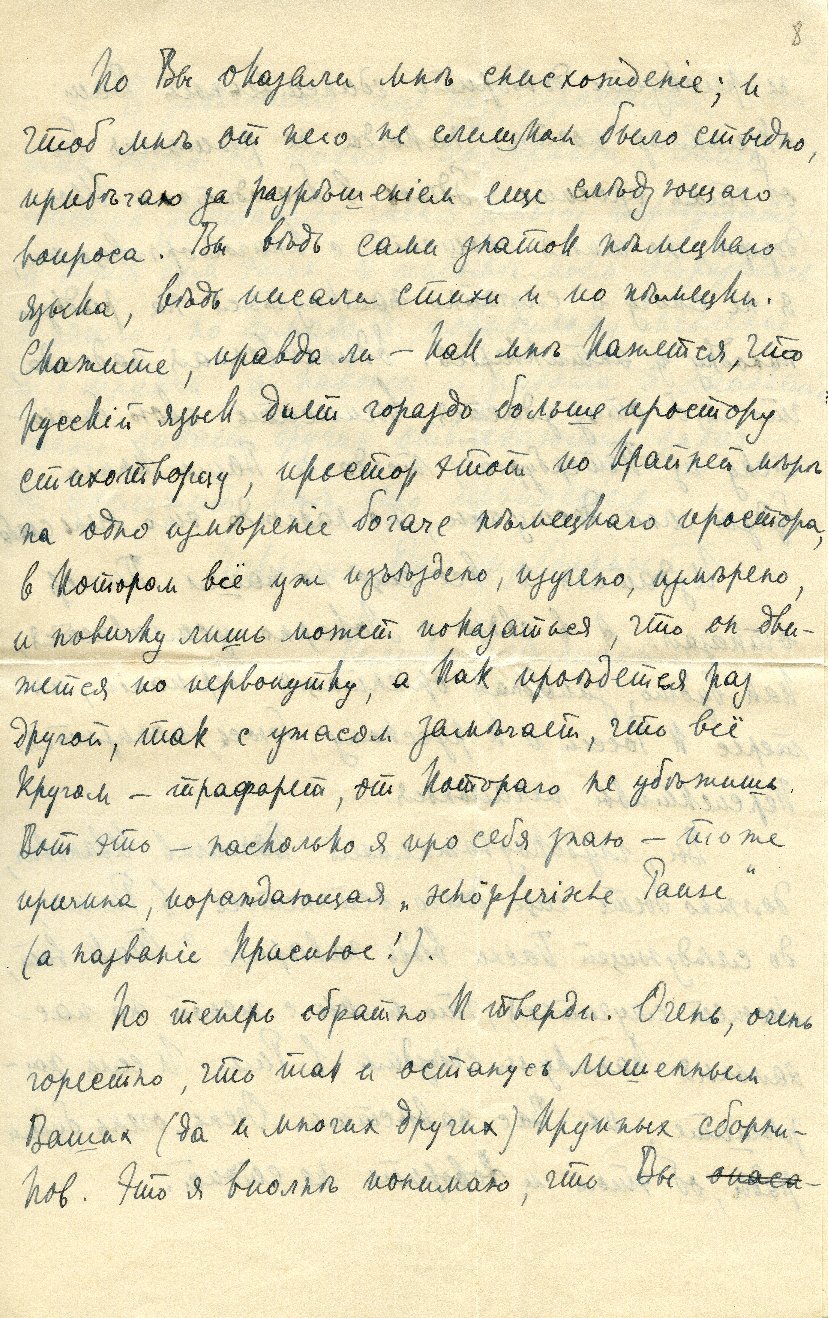 8
Но Вы оказали мнѣ снисхожденіе; и
чтоб мнѣ от него не слишком было стыдно,
прибѣгаю за разрѣшеніем еще слѣдующаго
вопроса. Вы вѣдь сами знаток нѣмецкаго
языка, вѣдь писали стихи и по нѣмецки.
Скажите, правда ли – как мнѣ кажется, что
русскій язык дает гораздо больше простору
стихотворцу, простор этот по крайней мѣрѣ
на одно измѣреніе богаче нѣмецкаго простора,
в котором всё уж изъѣздено, изучено, измѣрено,
и новичку лишь может показаться, что он дви-
жется по первопутку, а как проѣдется раз
другой, так с ужасом замѣчает, что всё
кругом – трафарет, от котораго не убѣжишь.
Вот это – насколько я про себя знаю – тоже
причина, пораждающая „schöpferische Pause"
(а названіе красивое!).
Но теперь обратно к тверди. Очень, очень
горестно, что так и останусь лишенным
Ваших (да и многих других) крупных сборни-
ков. Это я вполнѣ понимаю, что Вы опаса-